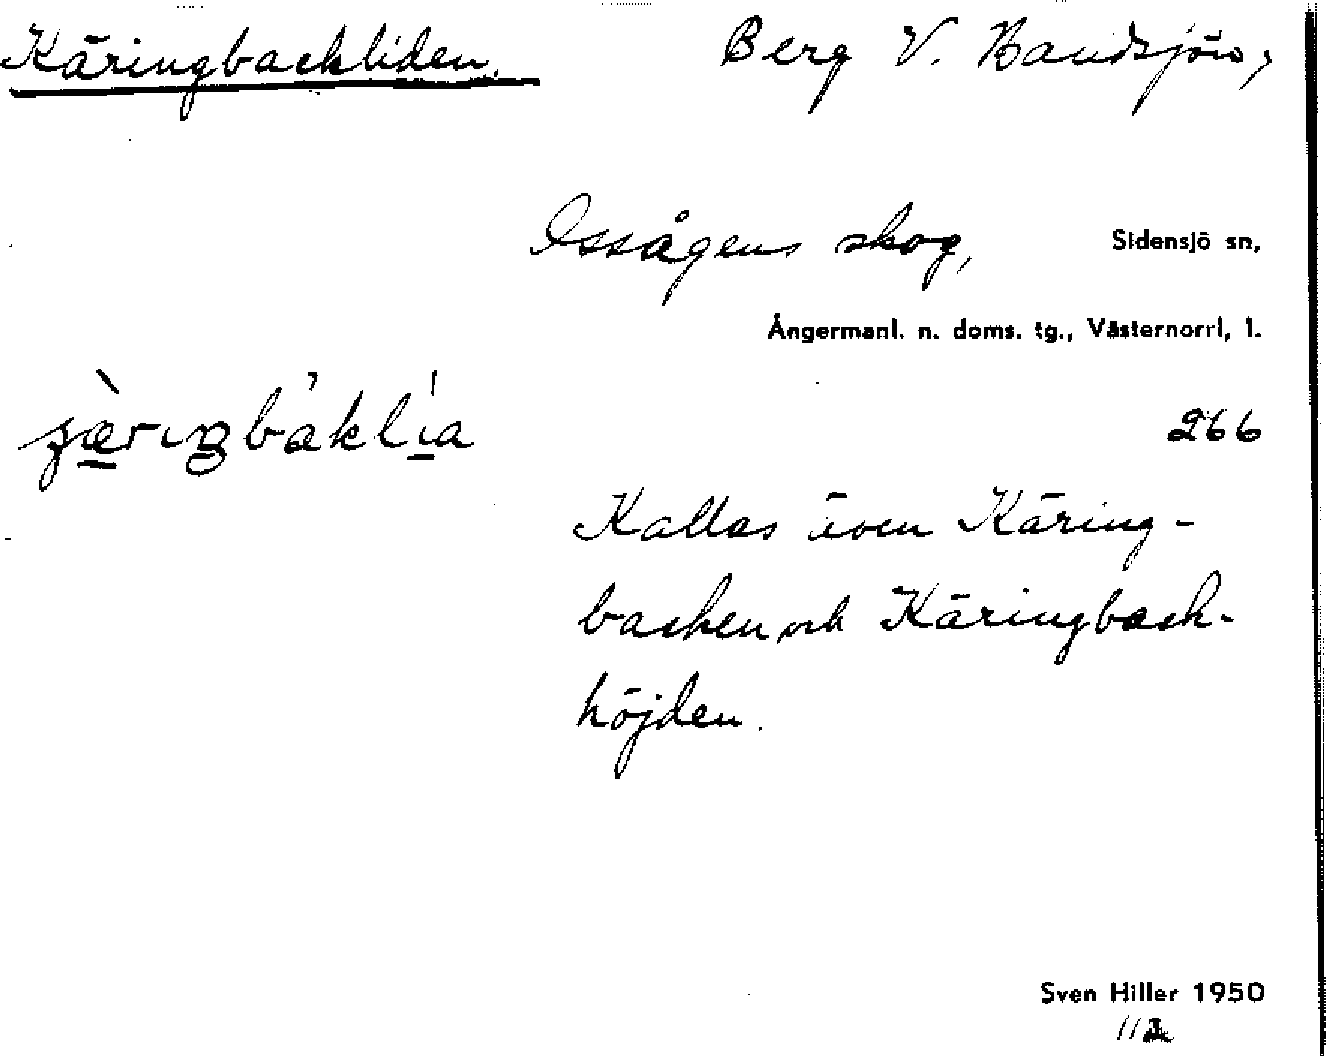 Käringbackliden. Berg V. Bandsjön,
Issågens skog, Sidensjö sn,
Ångermanl. n. doms. tg., Västernorrl, l.
266
Kallas även Käring-
backen och Käringback-
höjden.
Sven Hiller 1950